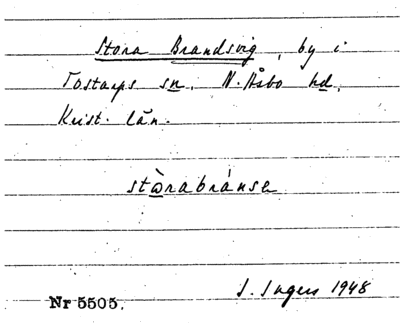 Stora Brandsvig, by i
Tostarps sn. N. Åsbo hd,
Krist. län.
stàrabránsa
I. Ingers 1948
Nr 5505.